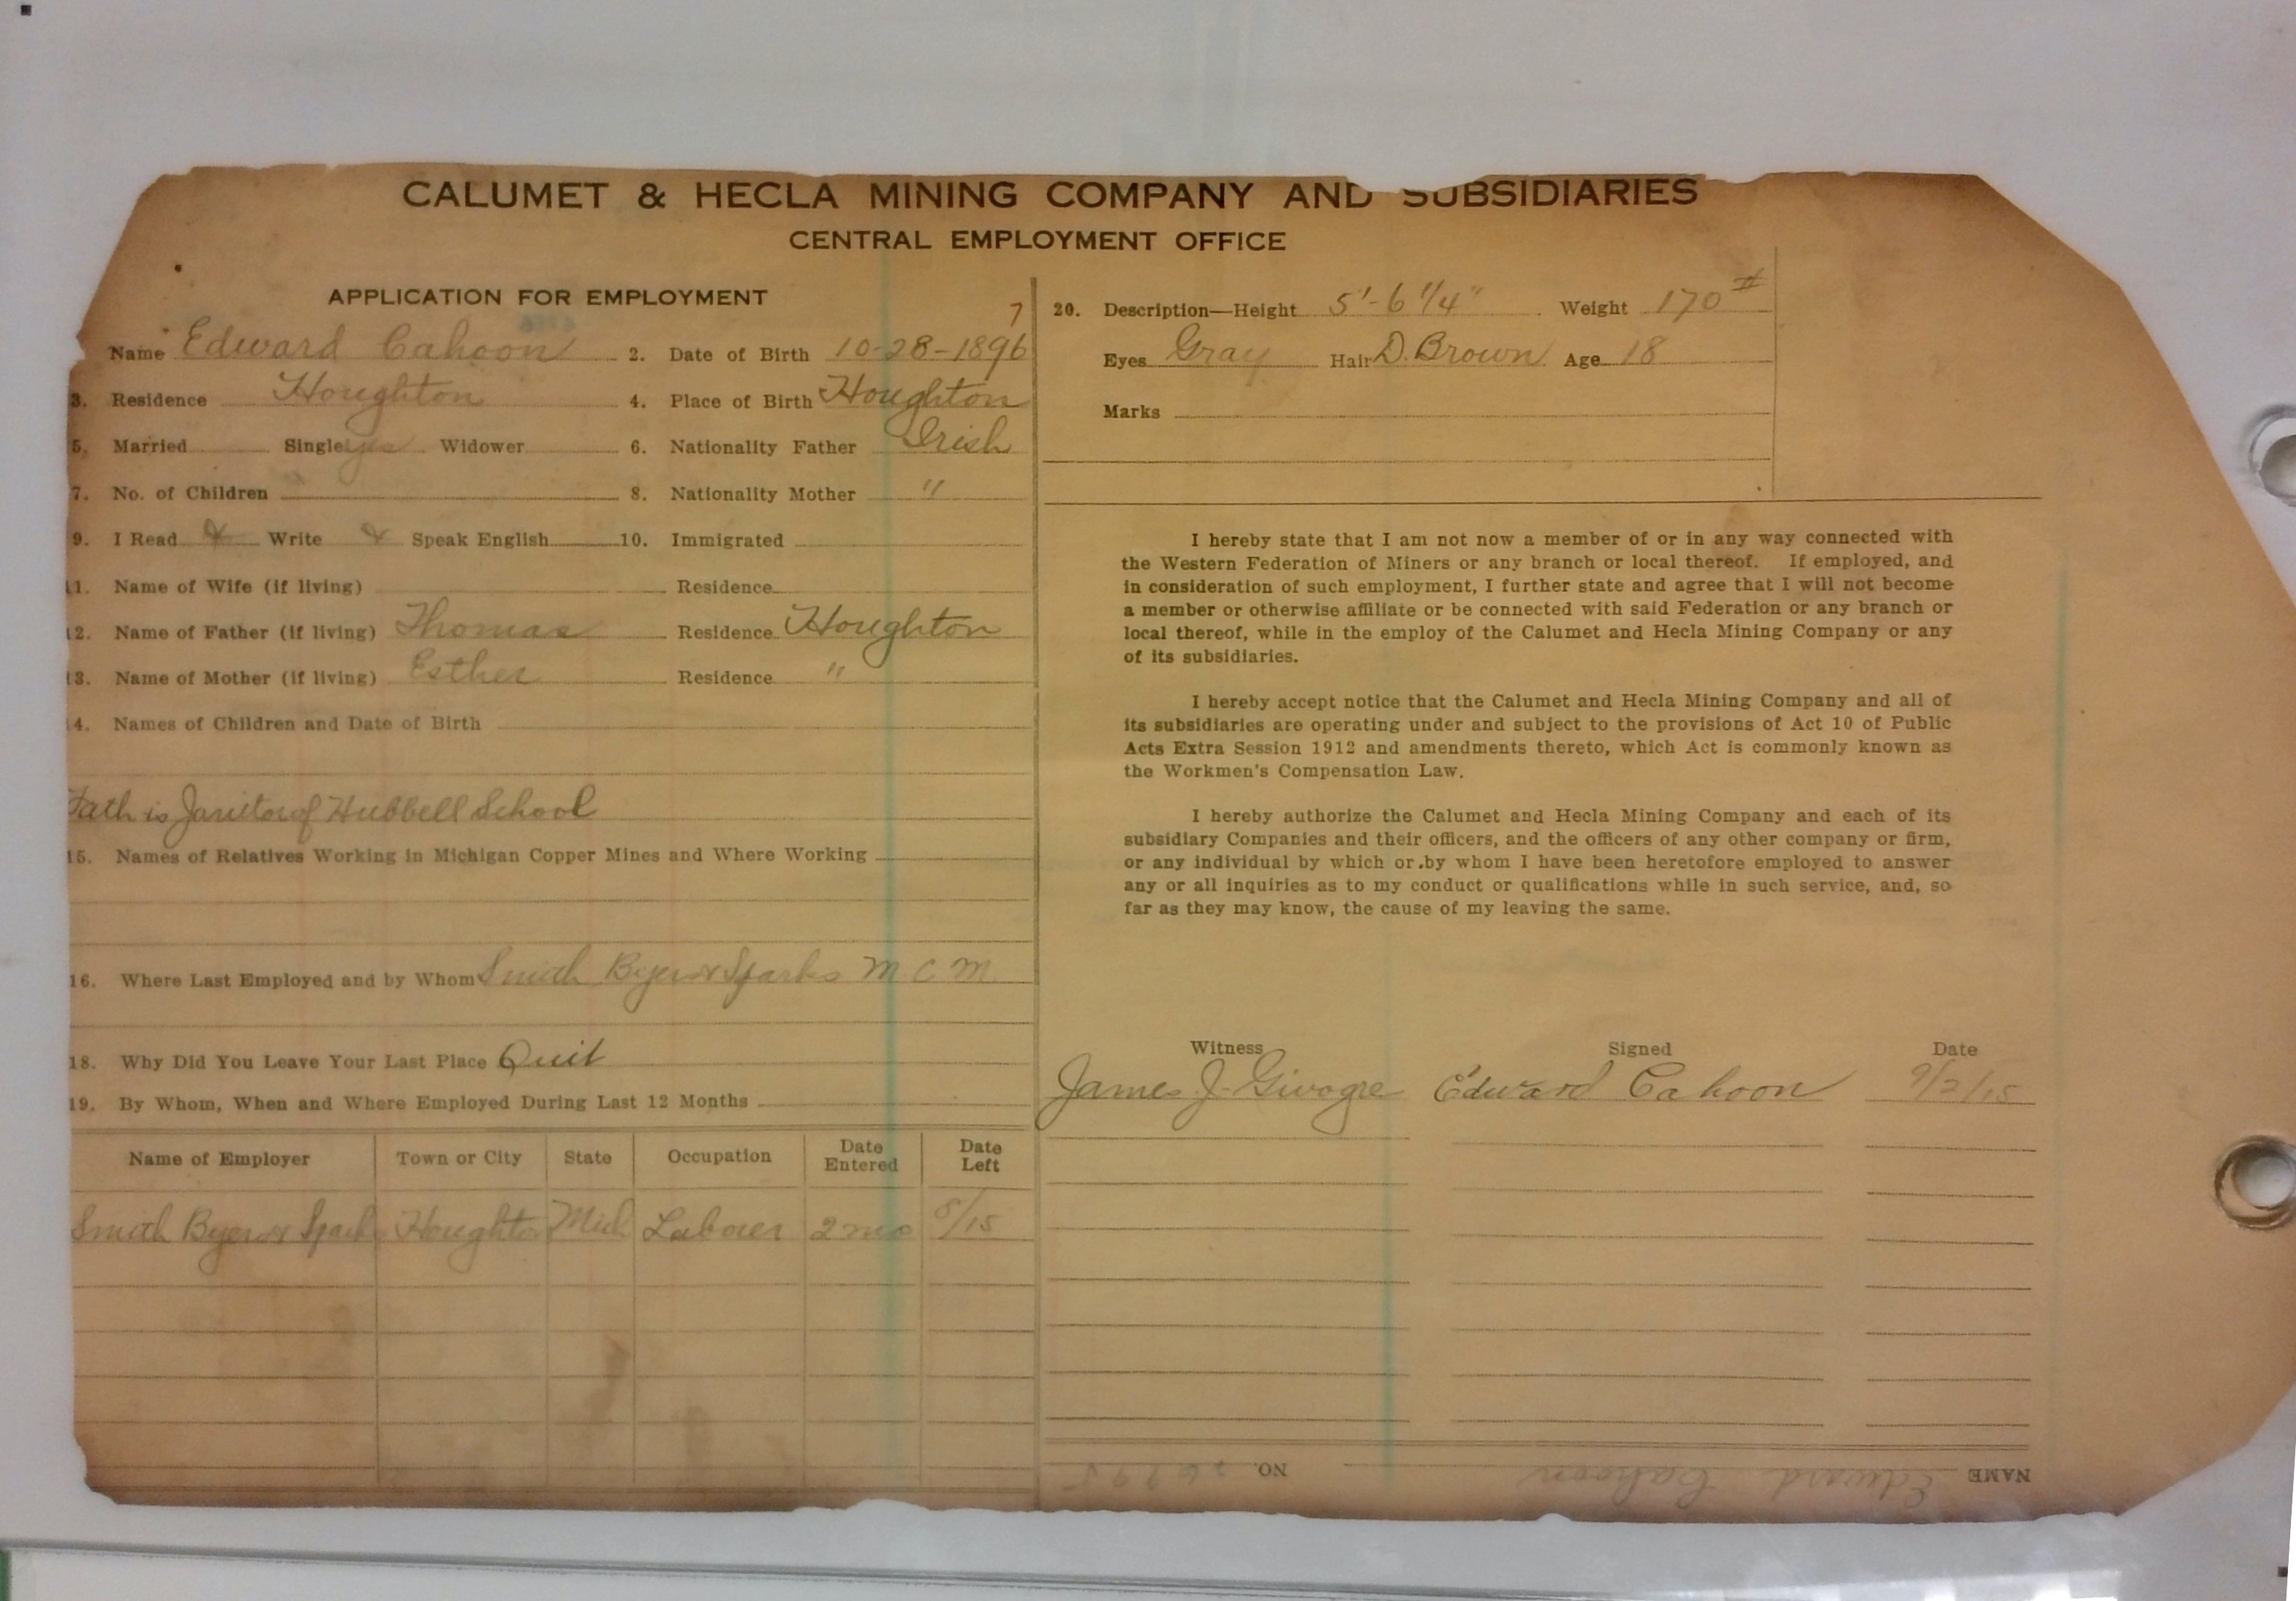 CALUMET & HECLA MINING COMPANY AND SUBSIDIARIES
CENTRAL EMPLOYMENT OFFICE
APPLICATION FOR EMPLOYMENT
7
Name Edward Cahoon 2. Date of Birth 10-28-1896
3. Residence Houghton 4. Place of Birth Houghton
5. Married Single yes Widower 6. Nationality Father Irish
7. No. of Children 8. Nationality Mother "
9. I Read & Write & Speak English 10. Immigrated
11. Name of Wife (if living) Residence
12. Name of Father (if living) Thomas Residence Houghton
13. Name of Mother (if living) Esther Residence "
14. Names of Children and Date of Birth
Fath is Janitor of Hubbell School
15. Names of Relatives Working in Michigan Copper Mines and Where Working
16. Where Last Employed and by Whom Smith Byers & Sparks M C M
18. Why Did You Leave Your Last Place Quit
19. By Whom, When and Where Employed During Last 12 Months
Name of Employer Town or City State Occupation Date Entered Date Left
Smith Byers & Spark Houghton Mich Laborer 2 mo 8/15
20. Description—Height 5'-6 1/4" Weight 170 #
Eyes Gray Hair D. Brown Age 18
Marks
I hereby state that I am not now a member of or in any way connected with
the Western Federation of Miners or any branch or local thereof. If employed, and
in consideration of such employment, I further state and agree that I will not become
a member or otherwise affiliate or be connected with said Federation or any branch or
local thereof, while in the employ of the Calumet and Hecla Mining Company or any
of its subsidiaries.
I hereby accept notice that the Calumet and Hecla Mining Company and all of
its subsidiaries are operating under and subject to the provisions of Act 10 of Public
Acts Extra Session 1912 and amendments thereto, which Act is commonly known as
the Workmen's Compensation Law.
I hereby authorize the Calumet and Hecla Mining Company and each of its
subsidiary Companies and their officers, and the officers of any other company or firm,
or any individual by which or by whom I have been heretofore employed to answer
any or all inquiries as to my conduct or qualifications while in such service, and, so
far as they may know, the cause of my leaving the same.
Witness Signed Date
James J. Givogre Edward Cahoon 9/2/15
NAME Edward Cahoon NO.